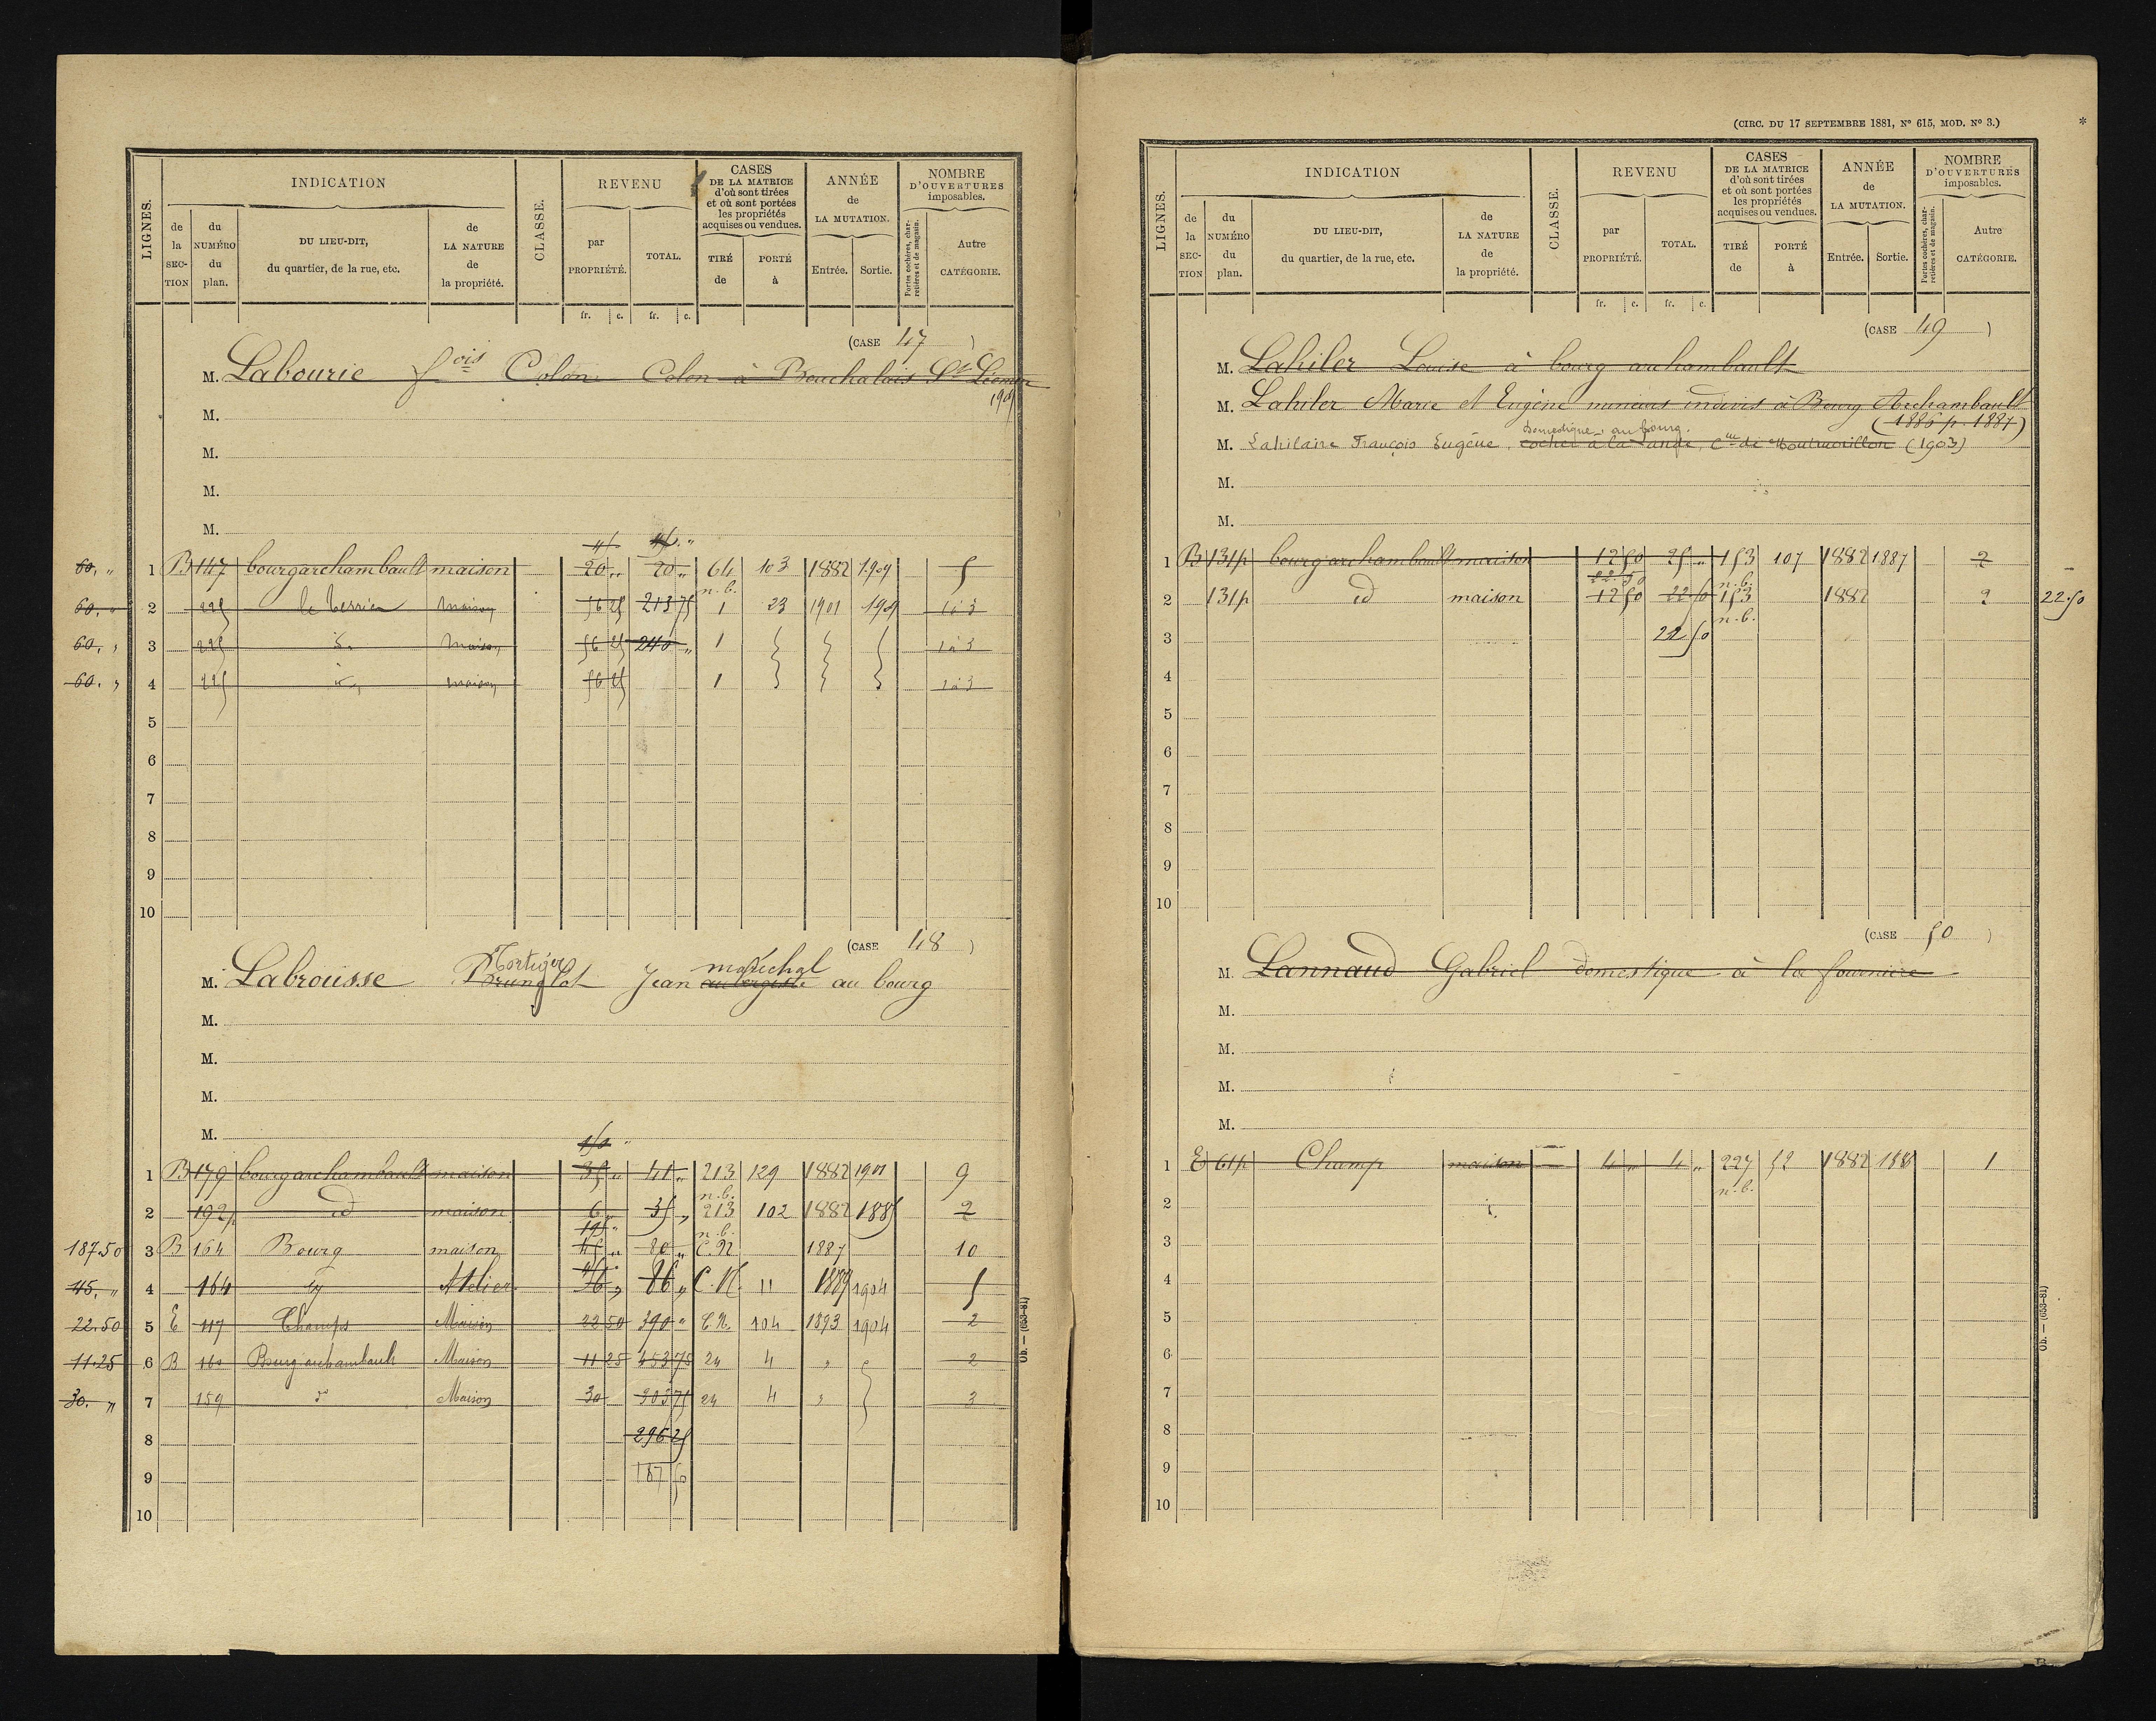 LIGNES.
INDICATION
CLASSE.
REVENU
CASES
DE LA MATRICE
d'où sont tirées
et où sont portées
les propriétés
acquises ou vendues.
ANNÉE
de
LA MUTATION.
NOMBRE
D'OUVERTURES
imposables.
de la SECTION
du NUMÉRO du plan.
DU LIEU-DIT,
du quartier, de la rue, etc.
de LA NATURE de la propriété.
par PROPRIÉTÉ.
TOTAL.
TIRÉ de
PORTÉ à
Entrée.
Sortie.
Portes cochères, charretières et de magasin.
Autre CATÉGORIE.
fr. c. fr. c.
(CASE 47)
M. Labourie fois Colon Colon à Bouchalais St Léomer
1909
M.
M.
M.
M.
45. 45. "
60. " 1 B 147 bourgarchambault maison 20 " 20 " 64 103 1882 1909 5
n.b.
60. " 2 225 le terrier maison 56 25 213 75 1 23 1901 1909 1 à 3
60. " 3 225 d° maison 56 25 240 " 1 1 à 3
60. " 4 225 d° maison 56 25 1 1 à 3
5
6
7
8
9
10
(CASE 48)
Tortiger maréchal
M. Labrousse Jean aubergiste au bourg
M.
M.
M.
M.
1 B 179 bourgarchambault maison 35 " 41 " 213 129 1882 1901 9
n.b.
2 192p id maison 6 " 35 " 213 102 1882 1885 2
n.b.
187.50 3 B 164 Bourg maison 45 " 80 " C.N. 1887 10
45. " 4 164 Atelier 36 " 86 " C.N. 11 1889 1904 5
22.50 5 E 117 Champs Maison 22 50 390 " C.N. 104 1893 1904 2
11.25 6 B 160 Bourgarchambault Maison 11 25 453 75 24 4 " 2
30. " 7 159 d° Maison 30 303 75 24 4 " 3
8 296 25
9 187 50
10
Ob. — (653-81)
(CIRC. DU 17 SEPTEMBRE 1881, N° 615, MOD. N° 3.)
*
LIGNES.
INDICATION
CLASSE.
REVENU
CASES
DE LA MATRICE
d'où sont tirées
et où sont portées
les propriétés
acquises ou vendues.
ANNÉE
de
LA MUTATION.
NOMBRE
D'OUVERTURES
imposables.
de la SECTION
du NUMÉRO du plan.
DU LIEU-DIT,
du quartier, de la rue, etc.
de LA NATURE de la propriété.
par PROPRIÉTÉ.
TOTAL.
TIRÉ de
PORTÉ à
Entrée.
Sortie.
Portes cochères, charretières et de magasin.
Autre CATÉGORIE.
fr. c. fr. c.
(CASE 49)
M. Lahiler Louise à bourg archambault
M. Lahiler Marie et Eugène mineurs indivis à Bourg Archambault
(1886 p. 1887)
Domestique au bourg.
M. Lahilaire François Eugène, cocher à la Lande, Cne de Montmorillon (1903)
M.
M.
1 B 131p bourgarchambault maison 12 50 25 " 153 107 1882 1887 2
22.50 n.b.
2 131p id maison 12 50 22 50 153 1882 2 22.50
n.b.
3 22 50
4
5
6
7
8
9
10
(CASE 50)
M. Lannaud Gabriel domestique à la fournière
M.
M.
M.
M.
1 E 61p Champ maison 4 " 4 " 227 52 1882 1
n.b.
2
3
4
5
6
7
8
9
10
Ob. — (653-81)